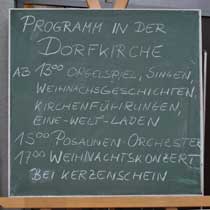 PROGRAMM IN DER
DORFKIRCHE
AB 13⁰⁰ ORGELSPIEL, SINGEN,
WEIHNACHSGESCHICHTEN,
KIRCHENFÜHRUNGEN,
EINE-WELT-LADEN
15⁰⁰ POSAUNEN-ORCHESTER
17⁰⁰ WEIHNACHTSKONZERT
BEI KERZENSCHEIN